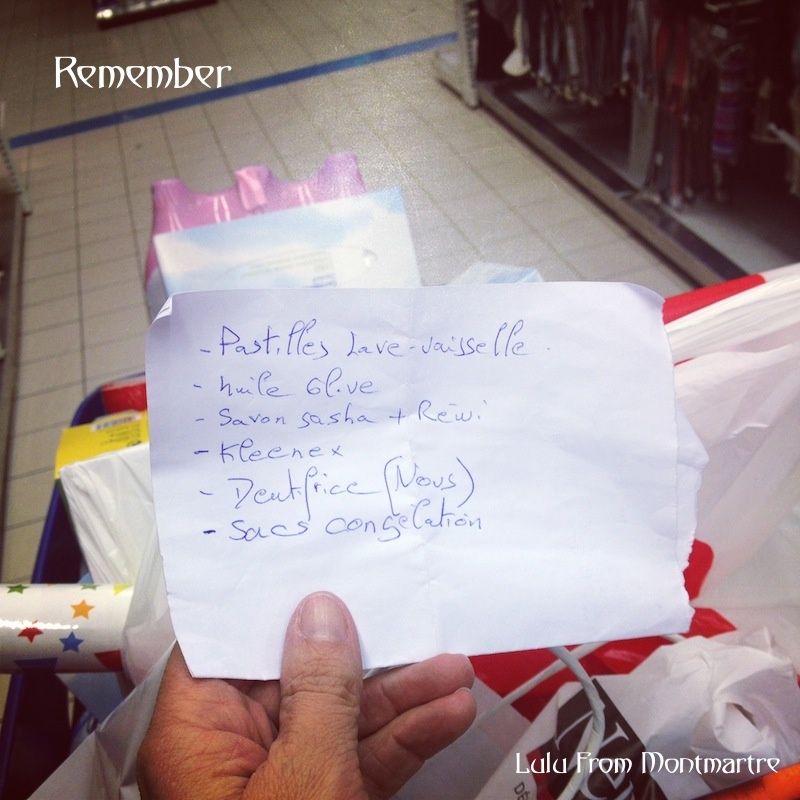 Remember
- Pastilles Lave-vaisselle.
- huile Olive
- Savon sasha + Réwi
- Kleenex
- Dentifrice (Nous)
- Sacs congélation
Lulu From Montmartre